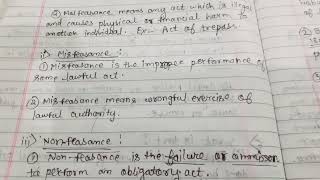 ② Malfeasance means any act which is illegal
and causes physical or financial harm to
another individual. Ex- Act of trepass.
ii) Misfeasance :
① Misfeasance is the improper performance of
some lawful act.
② Misfeasance means wrongful exercise of
lawful authority.
iii) Nonfeasance :
① Non-feasance is the failure or ommission
to perform an obligatory act.